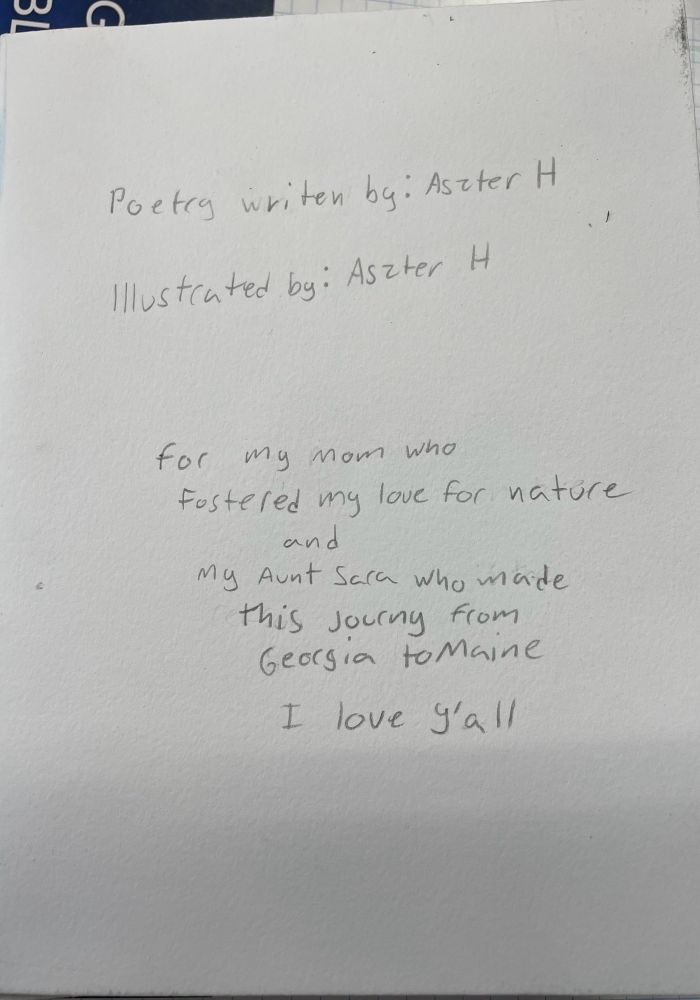 G
BL
Poetry writen by: Aszter H
Illustrated by: Aszter H
for my mom who
fostered my love for nature
and
my Aunt Sara who made
this journy from
Georgia to Maine
I love y'all